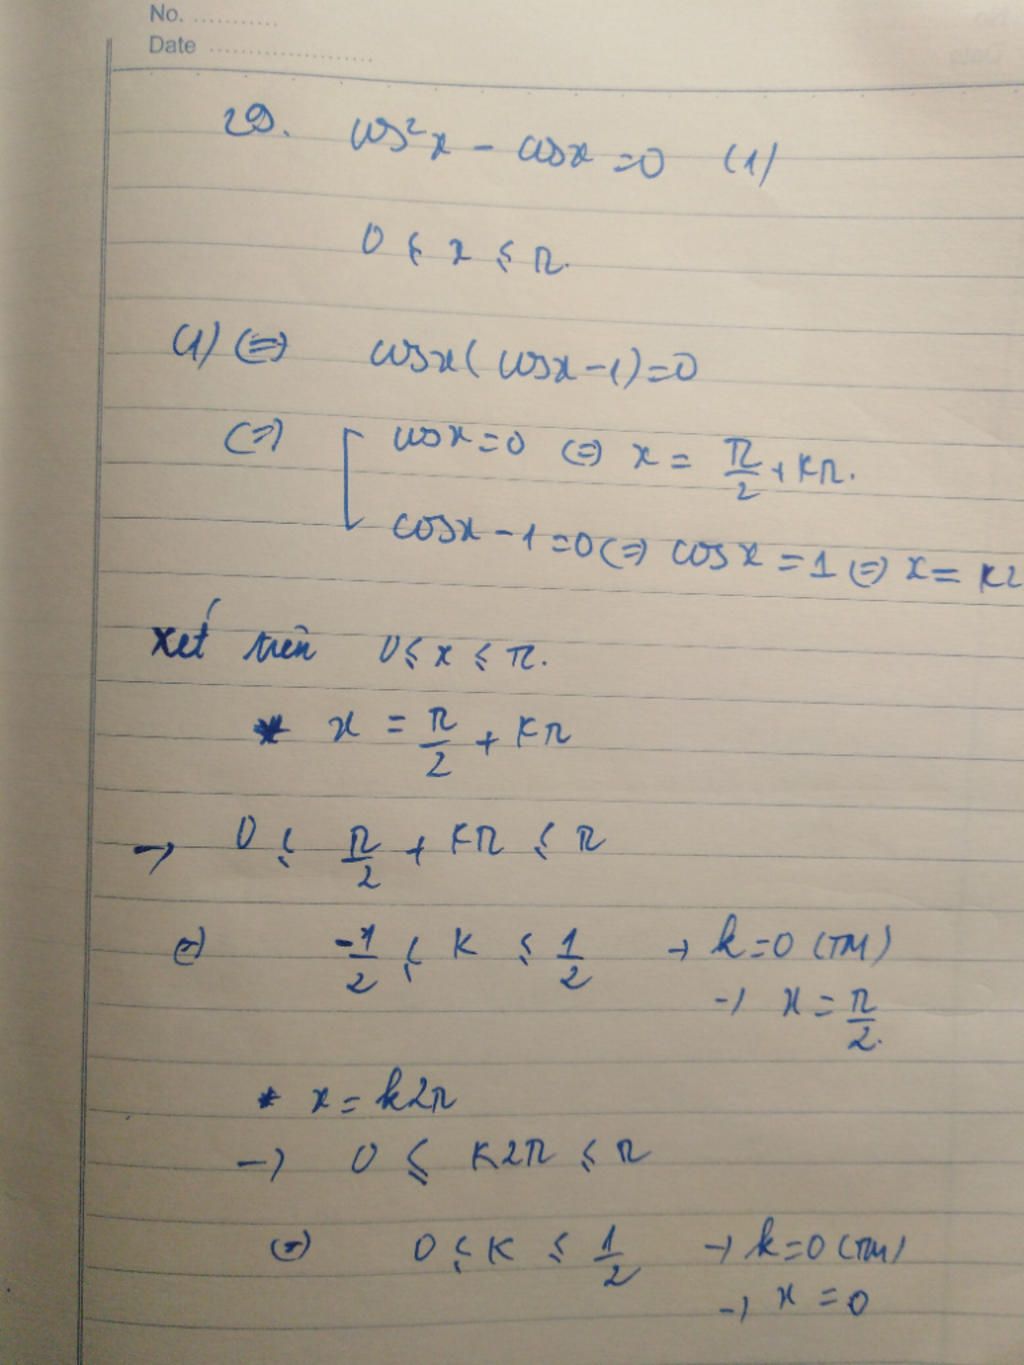 No. ............
Date ......................
29. cos²x - cosx = 0 (1)
0 ≤ x ≤ π.
(1) (=) cosx( cosx - 1) = 0
(=) [ cosx = 0 (=) x = π/2 + kπ.
cosx - 1 = 0 (=) cosx = 1 (=) x = k2
Xét trên 0 ≤ x ≤ π.
* x = π/2 + kπ
→ 0 ≤ π/2 + kπ ≤ π
(=) -1/2 ≤ k ≤ 1/2 → k = 0 (TM)
→ x = π/2.
* x = k2π
→ 0 ≤ k2π ≤ π
(=) 0 ≤ k ≤ 1/2 → k = 0 (TM)
→ x = 0